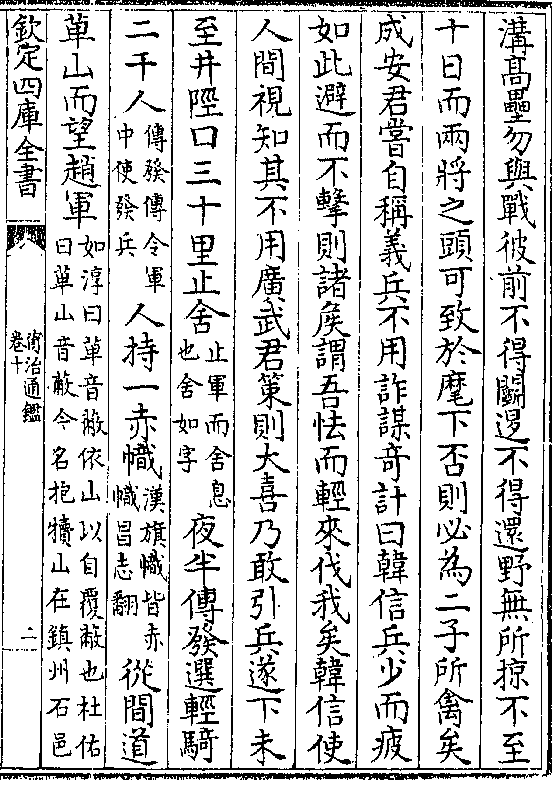 溝髙壘勿與戰彼前不得鬬退不得還野無所掠不至
十日而兩將之頭可致於麾下否則必為二子所禽矣
成安君嘗自稱義兵不用詐謀奇計曰韓信兵少而疲
如此避而不擊則諸侯謂吾怯而輕來伐我矣韓信使
人間視知其不用廣武君策則大喜乃敢引兵遂下未
至井陘口三十里止舍止軍而舍息也舍如字夜半傳發選輕騎
二千人傳發傳令軍中使發兵人持一赤幟漢旗幟皆赤幟昌志翻從間道
萆山而望趙軍如淳曰萆音蔽依山以自覆蔽也杜佑曰萆山音蔽今名抱犢山在鎮州石邑
欽定四庫全書
御治通鑑
卷十
二